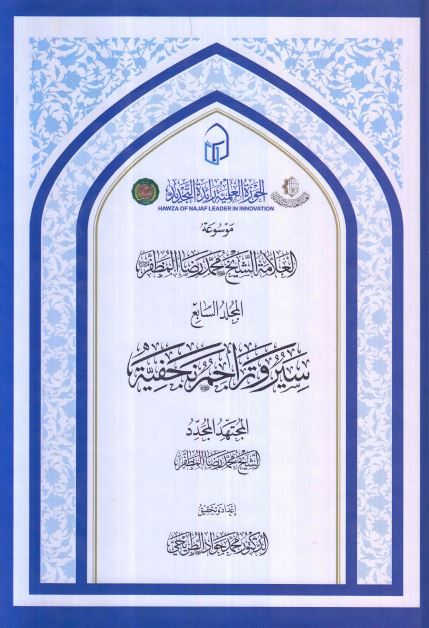 الحوزة العلمية رائدة التجدد
HAWZA OF NAJAF LEADER IN INNOVATION
موسوعة
العلامة الشيخ محمد رضا المظفر
المجلد السابع
سير وتراجم نجفية
المجتهد المجدد
الشيخ محمد رضا المظفر
إعداد وتحقيق
الدكتور محمد جواد الطريحي